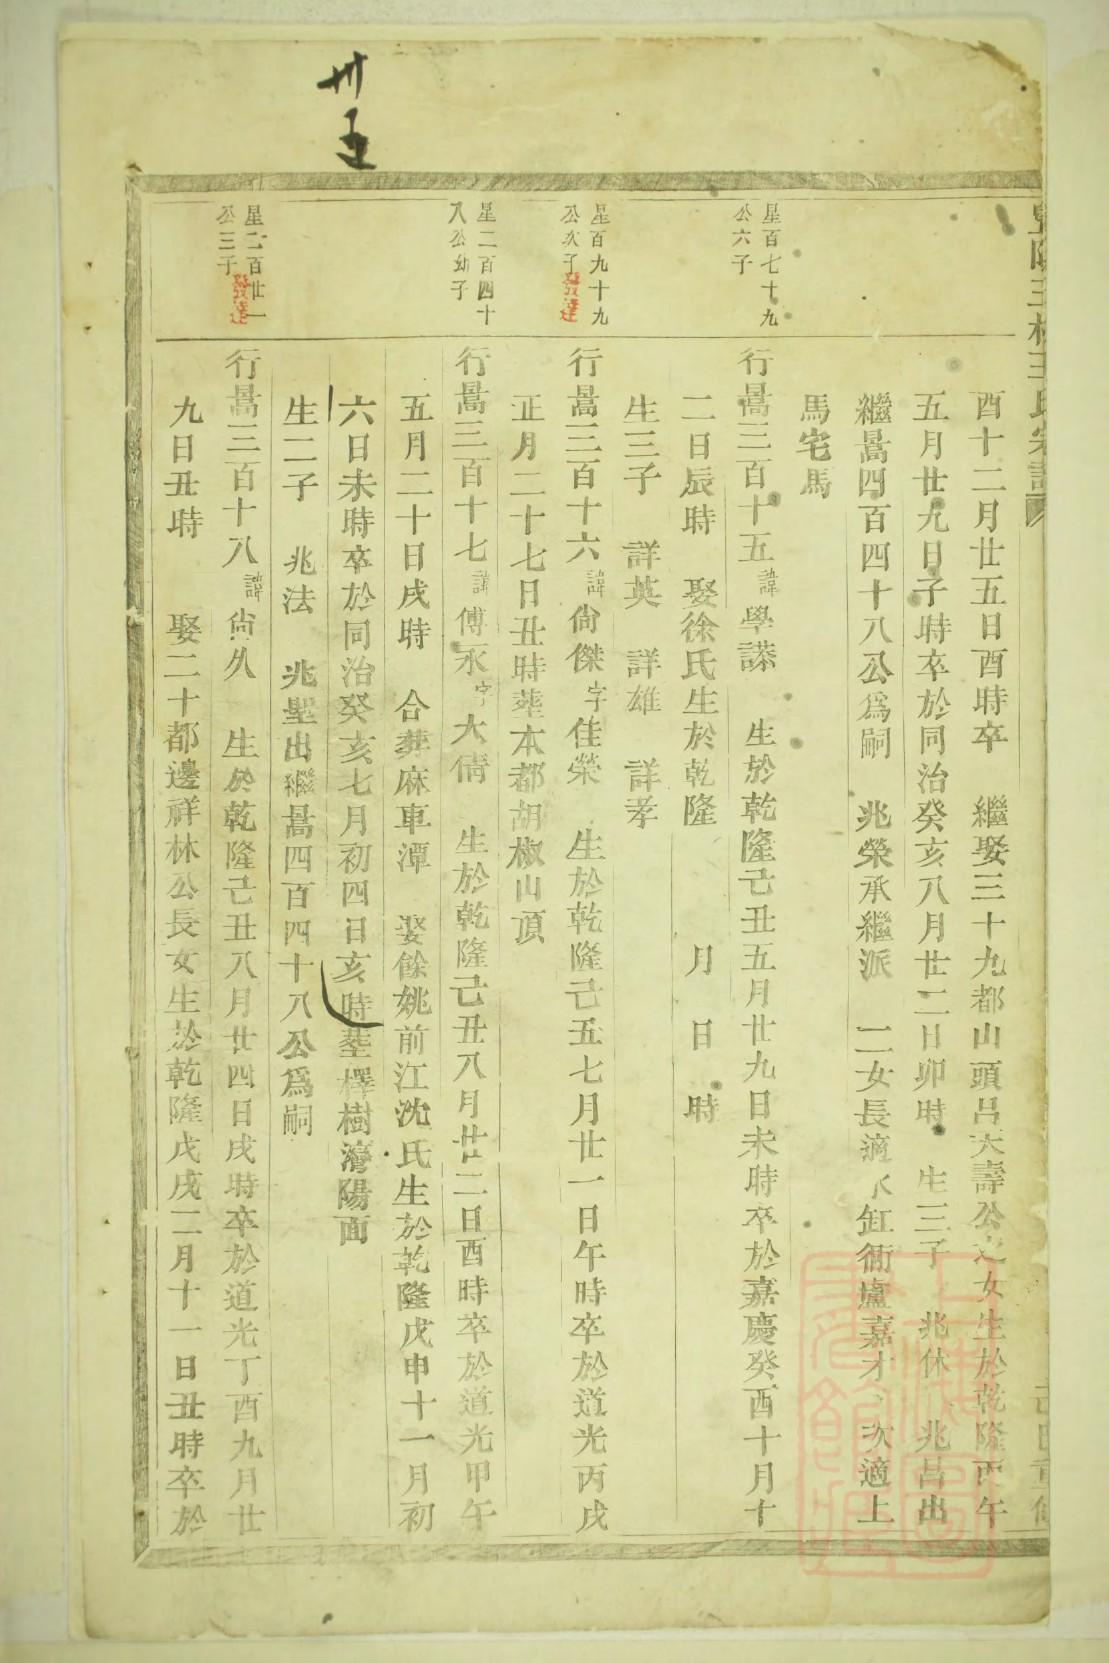 卅五
酉十二月廿五日酉時卒　繼娶三十九都山頭呂天壽公之女生於乾隆丙午
五月廿九日子時卒於同治癸亥八月廿二日卯時　生三子　兆休　兆昌出
繼暠四百四十八公爲嗣　兆榮承繼派　二女長適水缸衕爐嘉才　次適上
馬宅馬
星百七十九
公六子
行暠三百十五諱學　生於乾隆己丑五月廿九日未時卒於嘉慶癸酉十月十
二日辰時　娶徐氏生於乾隆　月　日　時
生三子　詳英　詳雄　詳孝
星百九十九
公次子
發達
行暠三百十六諱尙傑字佳榮　生於乾隆己五七月廿一日午時卒於道光丙戌
正月二十七日丑時塟本都胡椒山頂
星二百四十
八公幼子
行暠三百十七諱傅永字大倩　生於乾隆己丑八月廿二日酉時卒於道光甲午
五月二十日戌時　合葬麻車潭　娶餘姚前江沈氏生於乾隆戊申十一月初
六日未時卒於同治癸亥七月初四日亥時塟檡樹灣陽面
生二子　兆法　兆壐出繼暠四百四十八公爲嗣
星二百廿一
公三子
發達
行暠三百十八諱尙久　生於乾隆己丑八月廿四日戌時卒於道光丁酉九月廿
九日丑時　娶二十都邊祥林公長女生於乾隆戊戌二月十一日丑時卒於